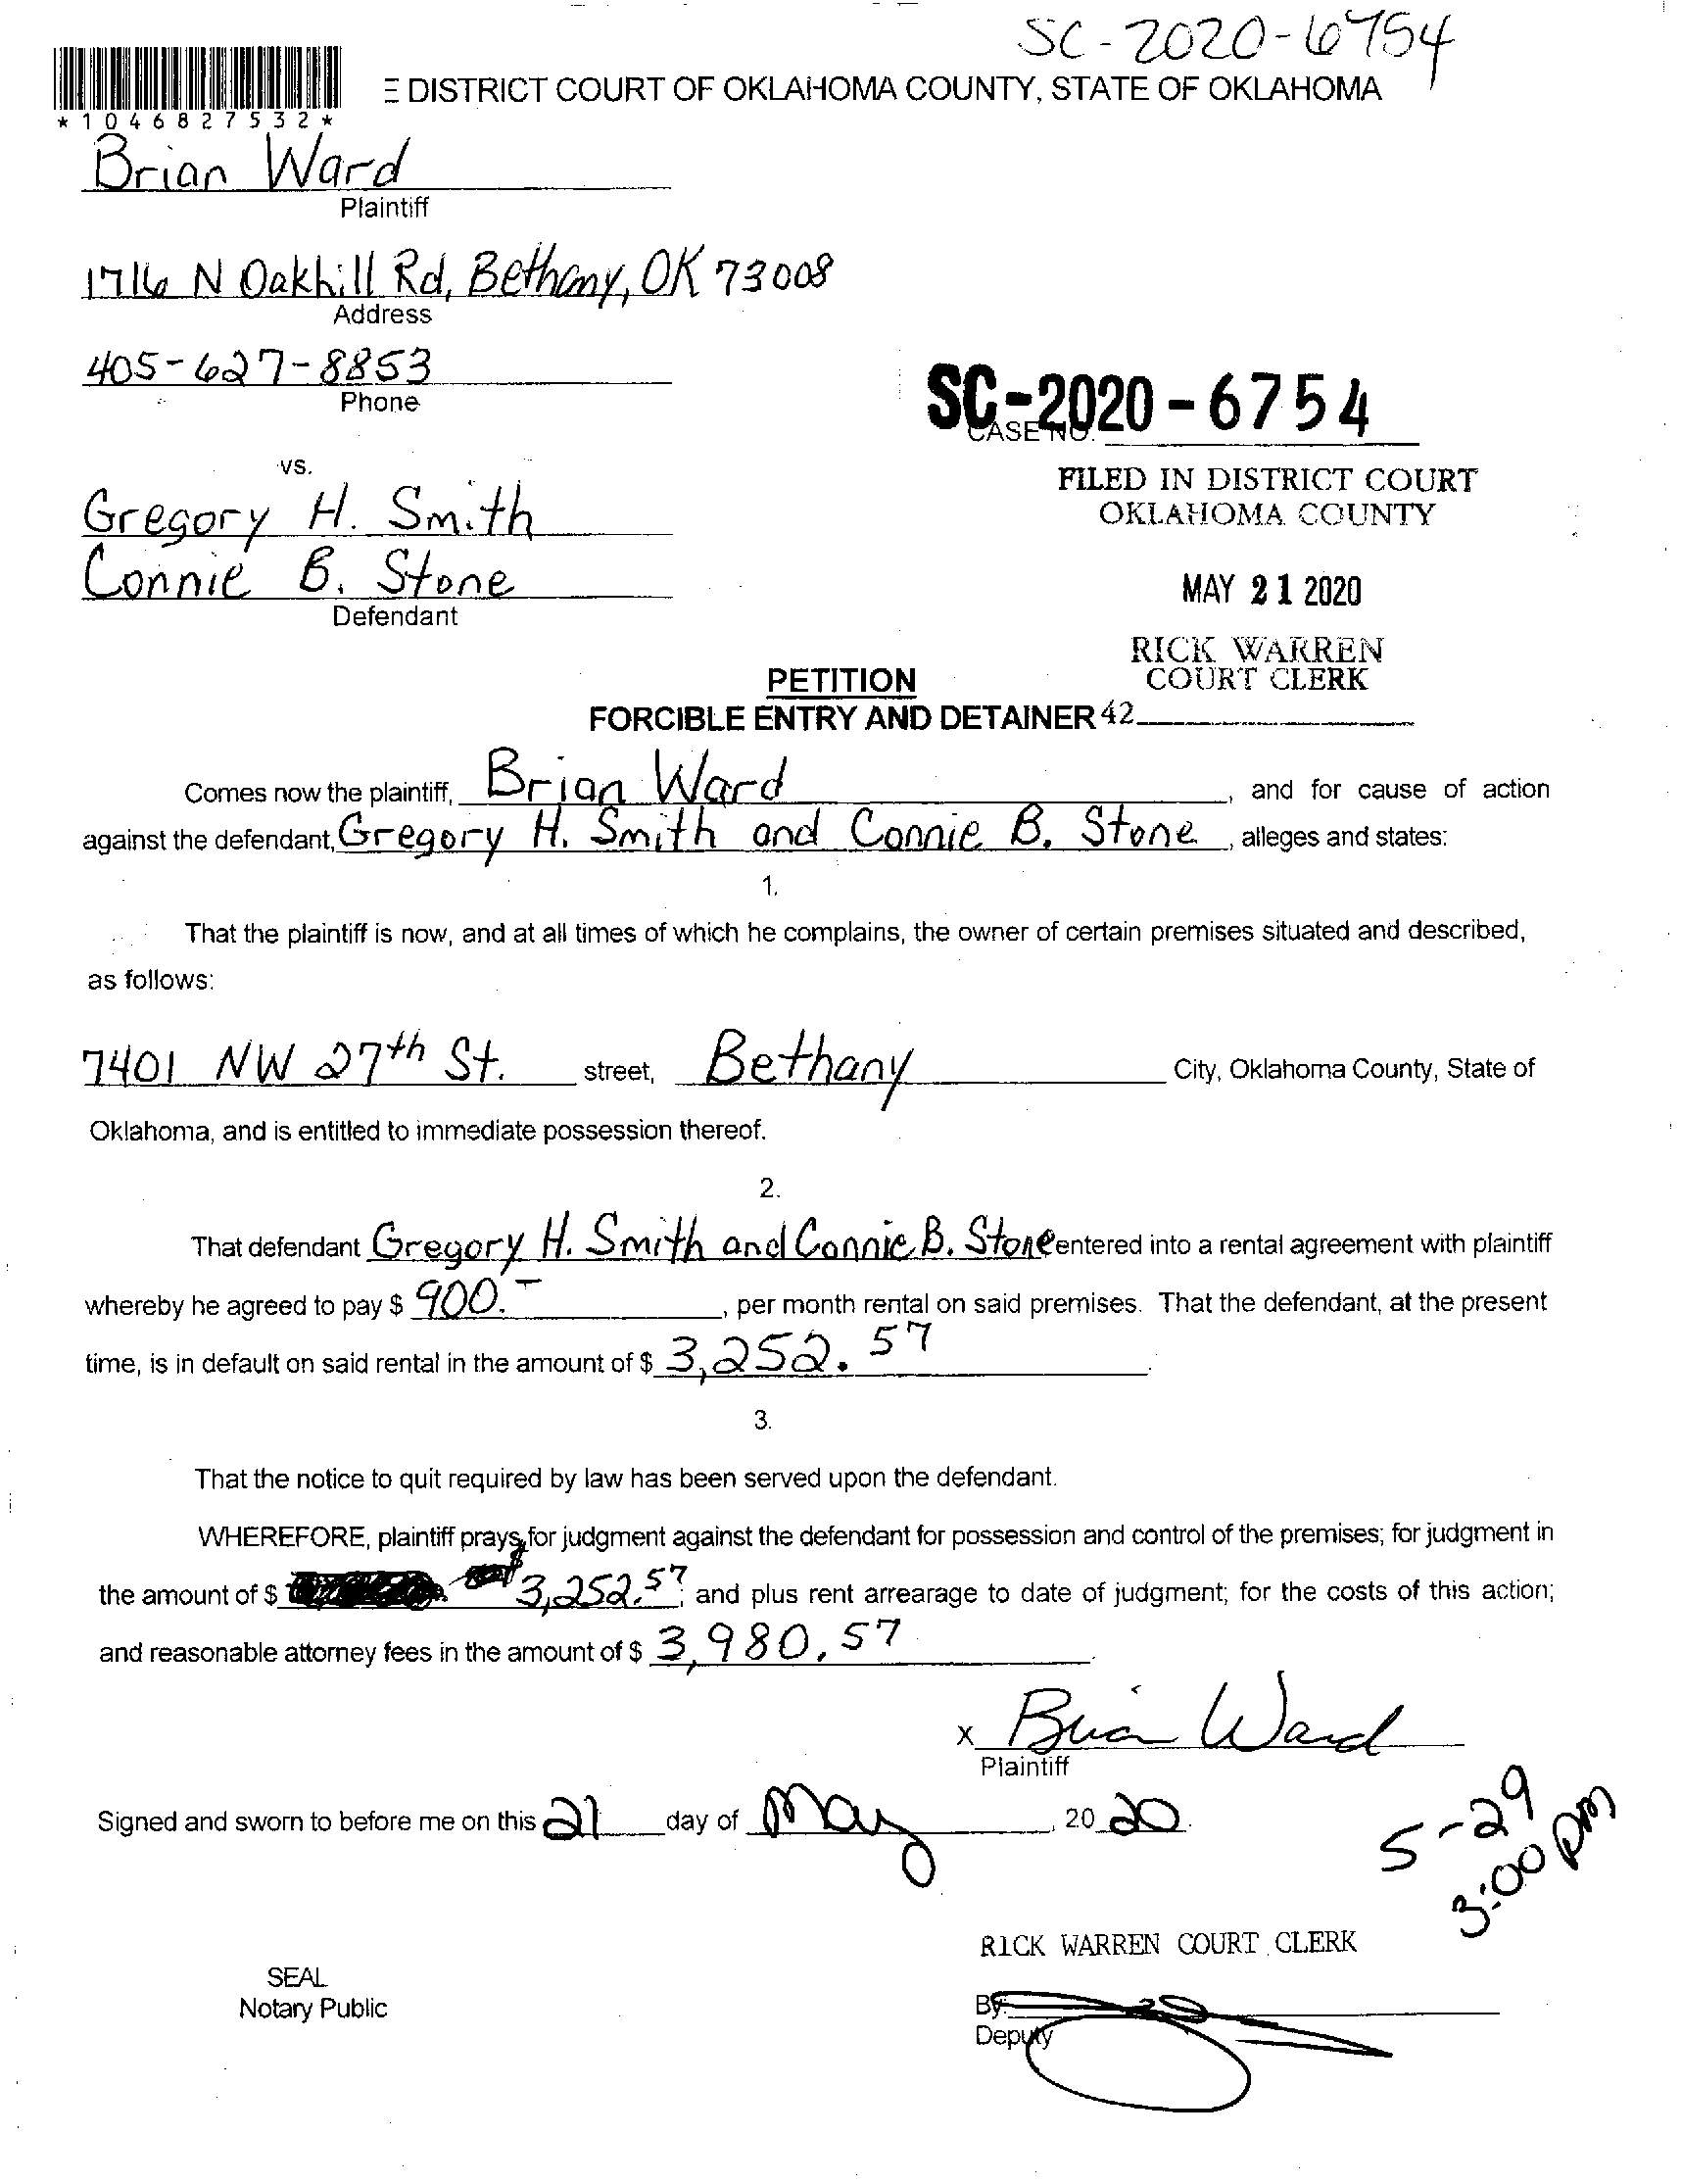 SC-2020-6754
E DISTRICT COURT OF OKLAHOMA COUNTY, STATE OF OKLAHOMA
*1046827532*
Brian Ward
Plaintiff
1716 N Oakhill Rd, Bethany, OK 73008
Address
405-627-8853
Phone
SC-2020-6754
CASE NO.
vs.
FILED IN DISTRICT COURT
OKLAHOMA COUNTY
Gregory H. Smith
Connie B. Stone
Defendant
MAY 21 2020
RICK WARREN
COURT CLERK
PETITION
FORCIBLE ENTRY AND DETAINER 42
Comes now the plaintiff, Brian Ward, and for cause of action
against the defendant, Gregory H. Smith and Connie B. Stone, alleges and states:
1.
That the plaintiff is now, and at all times of which he complains, the owner of certain premises situated and described,
as follows:
7401 NW 27th St. street, Bethany City, Oklahoma County, State of
Oklahoma, and is entitled to immediate possession thereof.
2.
That defendant Gregory H. Smith and Connie B. Stone entered into a rental agreement with plaintiff
whereby he agreed to pay $ 900.-, per month rental on said premises. That the defendant, at the present
time, is in default on said rental in the amount of $ 3,252.57.
3.
That the notice to quit required by law has been served upon the defendant.
WHEREFORE, plaintiff prays for judgment against the defendant for possession and control of the premises; for judgment in
the amount of $ $3,252.57; and plus rent arrearage to date of judgment; for the costs of this action;
and reasonable attorney fees in the amount of $ 3,980.57.
x Brian Ward
Plaintiff
Signed and sworn to before me on this 21 day of May, 20 20.
5-29
3:00 pm
RICK WARREN COURT CLERK
SEAL
Notary Public
By:
Deputy